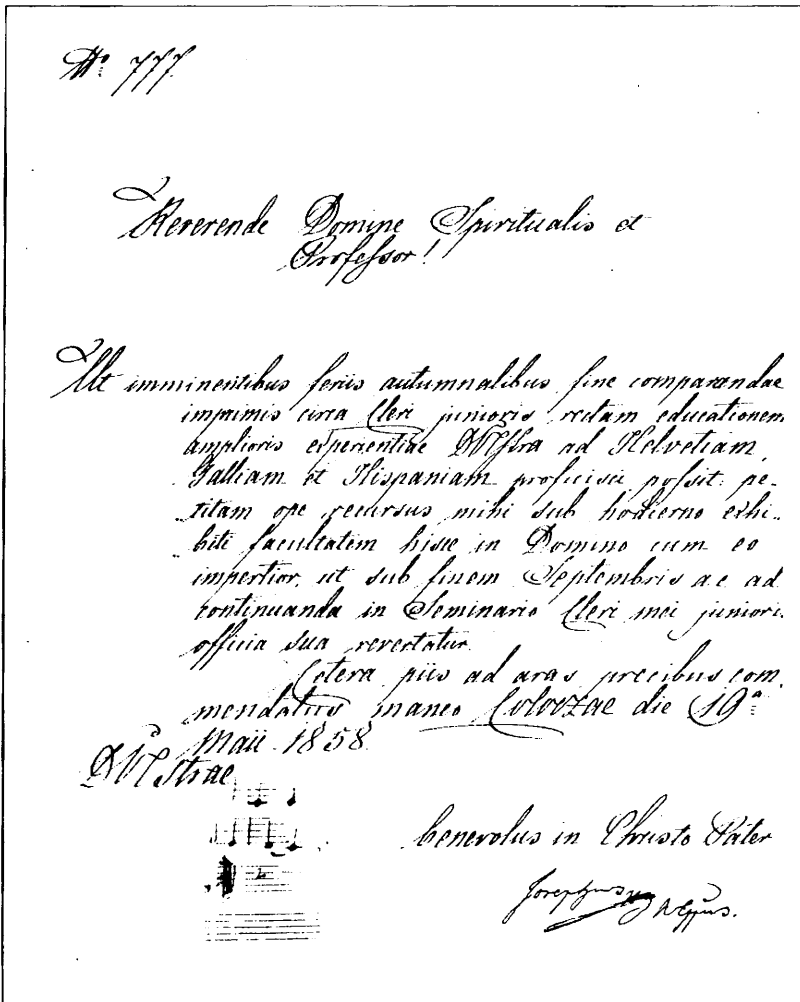 No 777.
Reverende Domine Spiritualis et
Professor!
Ut imminentibus feriis autumnalibus fine comparandae
imprimis circa Cleri junioris rectam educationem
amplioris experientiae DVestra ad Helvetiam,
Galliam et Hispaniam proficisci possit pe-
titam ope recursus mihi sub hodierno exhi-
biti facultatem hisce in Domino cum eo
impertior, ut sub finem Septembris a c ad
continuanda in Seminario Cleri mei junioris
officia sua revertatur.
Cetera piis ad aras precibus com
mendatus maneo Coloczae die 19a
Maii 1858.
DVestrae
benevolus in Christo Pater
Josephus